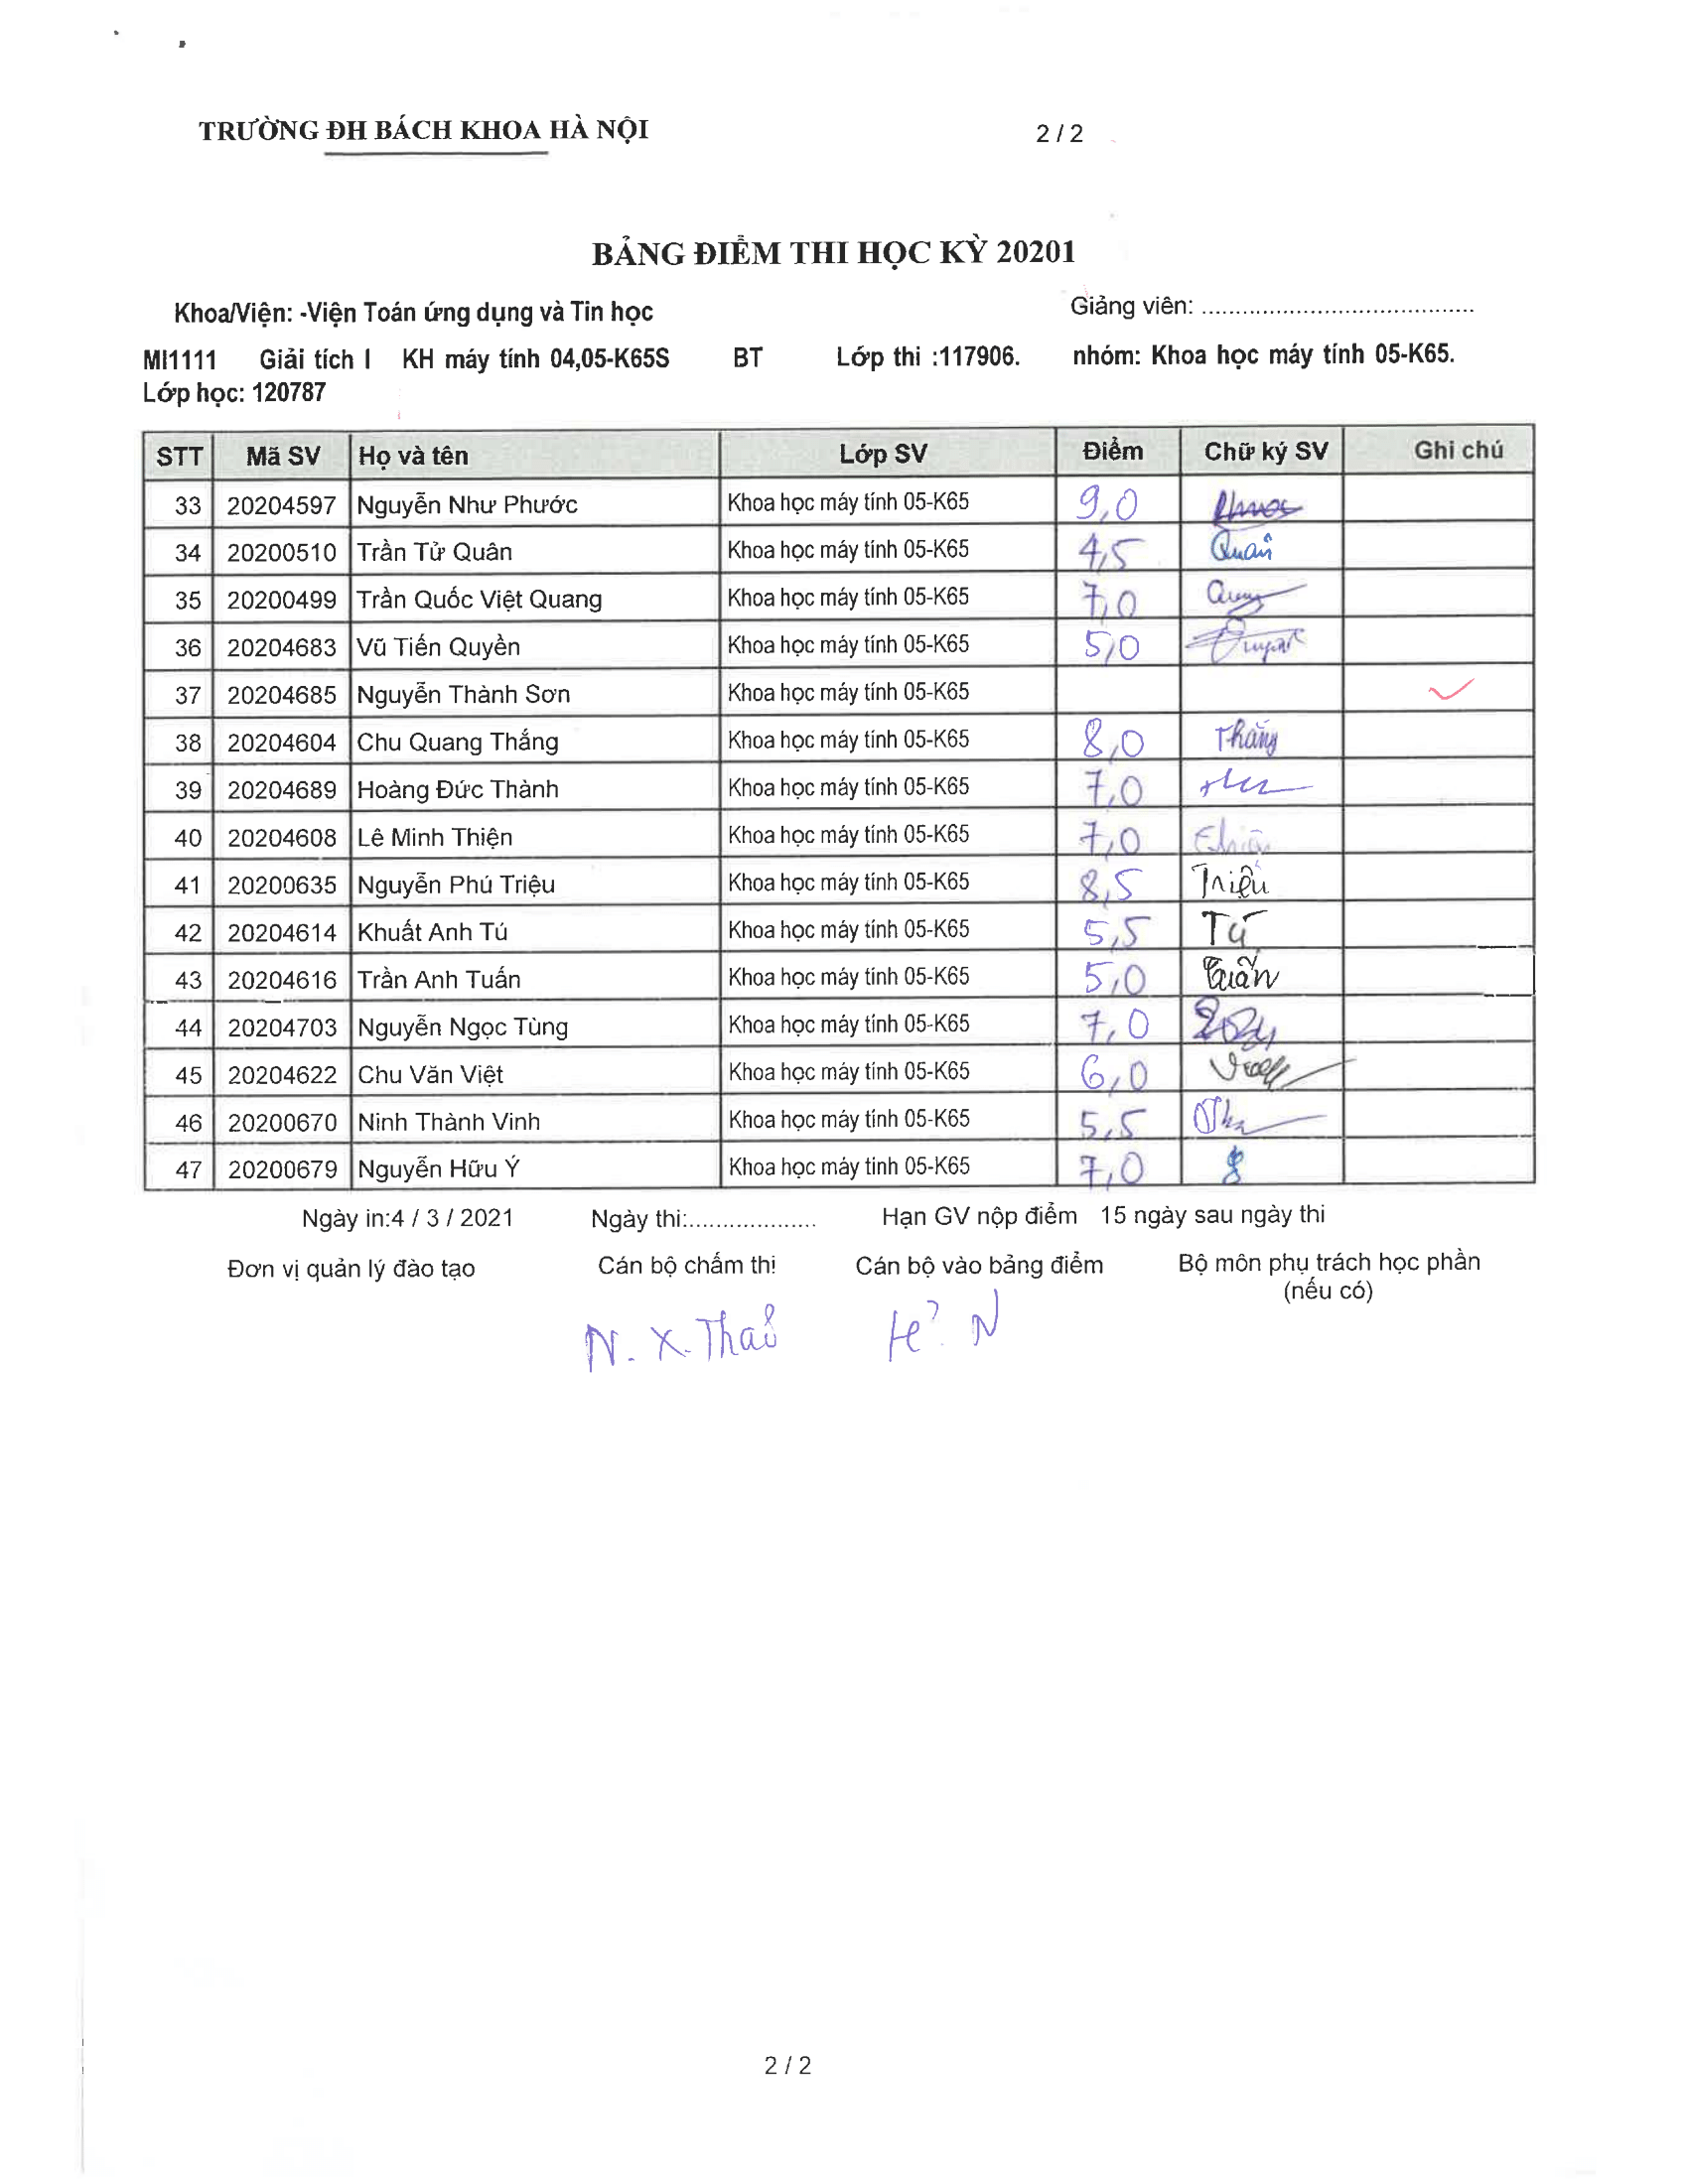 TRƯỜNG ĐH BÁCH KHOA HÀ NỘI 2 / 2
BẢNG ĐIỂM THI HỌC KỲ 20201
Khoa/Viện: -Viện Toán ứng dụng và Tin học Giảng viên: ........................................
MI1111 Giải tích I KH máy tính 04,05-K65S BT Lớp thi :117906. nhóm: Khoa học máy tính 05-K65.
Lớp học: 120787
STT Mã SV Họ và tên Lớp SV Điểm Chữ ký SV Ghi chú
33 20204597 Nguyễn Như Phước Khoa học máy tính 05-K65 9,0
34 20200510 Trần Tử Quân Khoa học máy tính 05-K65 4,5 Quân
35 20200499 Trần Quốc Việt Quang Khoa học máy tính 05-K65 7,0
36 20204683 Vũ Tiến Quyền Khoa học máy tính 05-K65 5,0
37 20204685 Nguyễn Thành Sơn Khoa học máy tính 05-K65
38 20204604 Chu Quang Thắng Khoa học máy tính 05-K65 8,0 Thắng
39 20204689 Hoàng Đức Thành Khoa học máy tính 05-K65 7,0
40 20204608 Lê Minh Thiện Khoa học máy tính 05-K65 7,0
41 20200635 Nguyễn Phú Triệu Khoa học máy tính 05-K65 8,5 Triệu
42 20204614 Khuất Anh Tú Khoa học máy tính 05-K65 5,5 Tú
43 20204616 Trần Anh Tuấn Khoa học máy tính 05-K65 5,0 Tuấn
44 20204703 Nguyễn Ngọc Tùng Khoa học máy tính 05-K65 7,0
45 20204622 Chu Văn Việt Khoa học máy tính 05-K65 6,0
46 20200670 Ninh Thành Vinh Khoa học máy tính 05-K65 5,5
47 20200679 Nguyễn Hữu Ý Khoa học máy tính 05-K65 7,0
Ngày in:4 / 3 / 2021 Ngày thi:................... Hạn GV nộp điểm 15 ngày sau ngày thi
Đơn vị quản lý đào tạo Cán bộ chấm thi Cán bộ vào bảng điểm Bộ môn phụ trách học phần
(nếu có)
N. X. Thảo
2 / 2